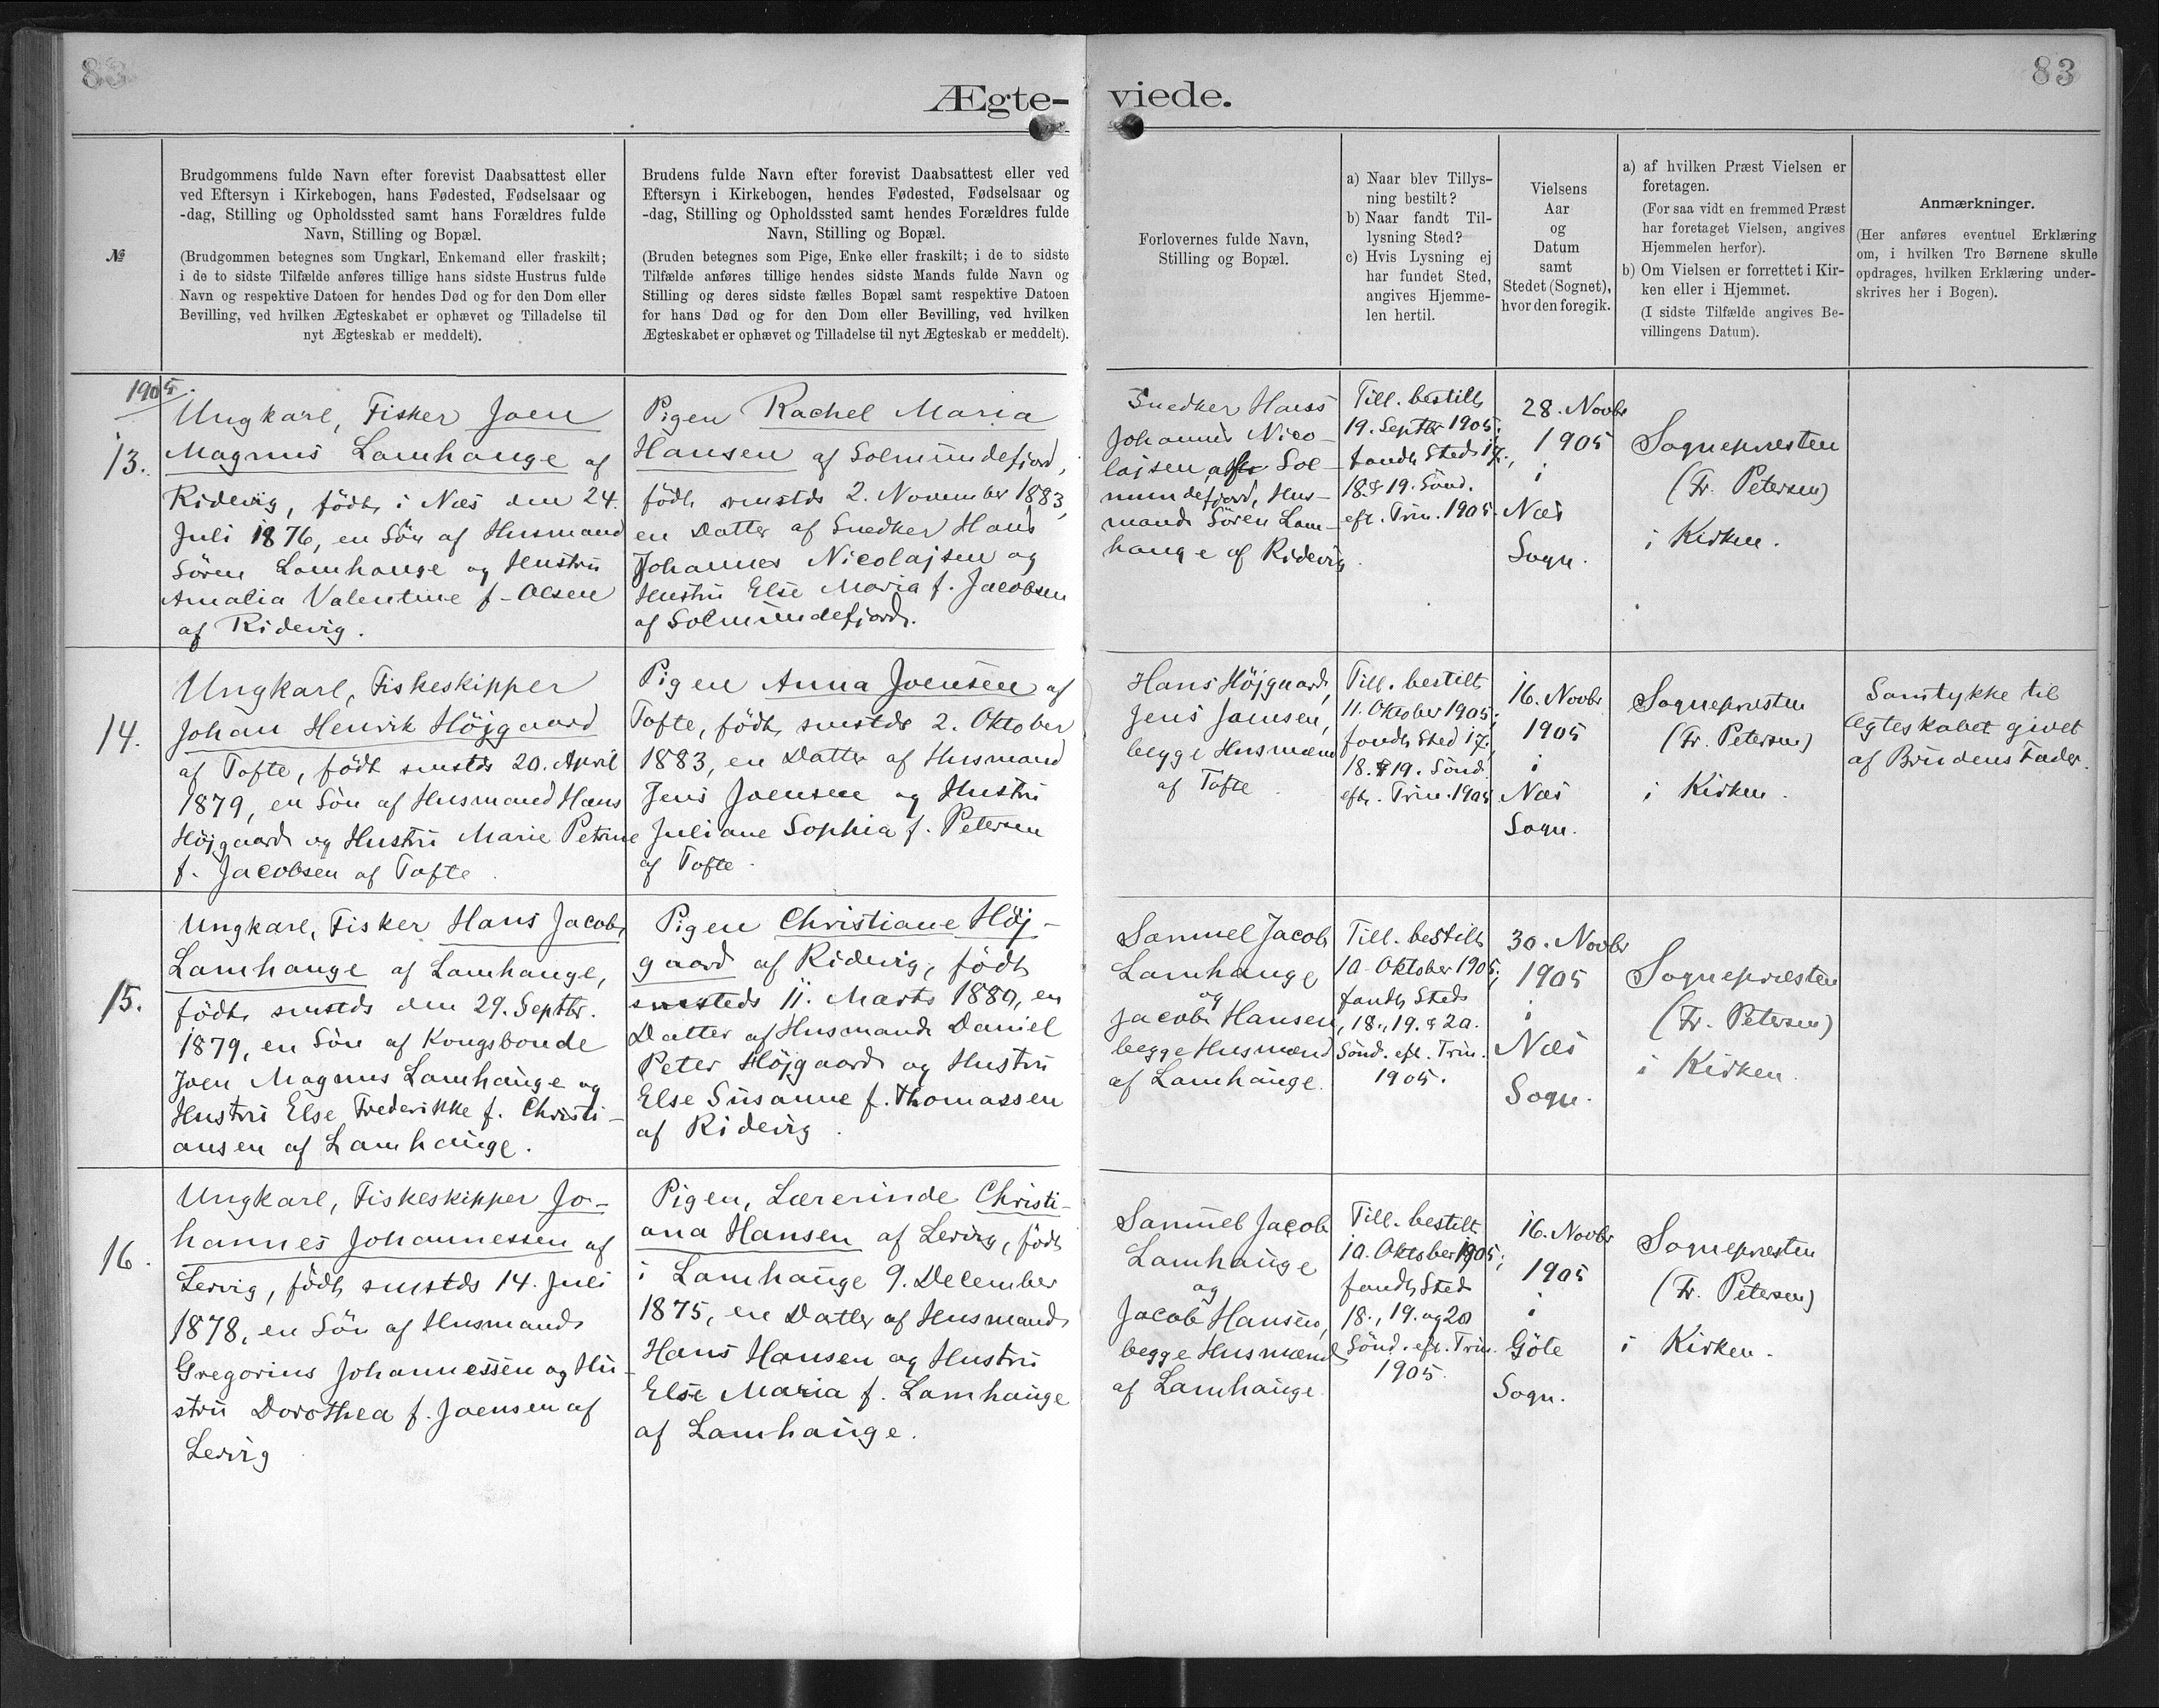 83
83
Ægte-
viede.
№
Brudgommens fulde Navn efter forevist Daabsattest eller
ved Eftersyn i Kirkebogen, hans Fødested, Fødselsaar og
-dag, Stilling og Opholdssted samt hans Forældres fulde
Navn, Stilling og Bopæl.
(Brudgommen betegnes som Ungkarl, Enkemand eller fraskilt;
i de to sidste Tilfælde anføres tillige hans sidste Hustrus fulde
Navn og respektive Datoen for hendes Død og for den Dom eller
Bevilling, ved hvilken Ægteskabet er ophævet og Tilladelse til
nyt Ægteskab er meddelt).
Brudens fulde Navn efter forevist Daabsattest eller ved
Eftersyn i Kirkebogen, hendes Fødested, Fødselsaar og
-dag, Stilling og Opholdssted samt hendes Forældres fulde
Navn, Stilling og Bopæl.
(Bruden betegnes som Pige, Enke eller fraskilt; i de to sidste
Tilfælde anføres tillige hendes sidste Mands fulde Navn og
Stilling og deres sidste fælles Bopæl samt respektive Datoen
for hans Død og for den Dom eller Bevilling, ved hvilken
Ægteskabet er ophævet og Tilladelse til nyt Ægteskab er meddelt).
Forlovernes fulde Navn,
Stilling og Bopæl.
a) Naar blev Tillys-
ning bestilt?
b) Naar fandt Til-
lysning Sted?
c) Hvis Lysning ej
har fundet Sted,
angives Hjemme-
len hertil.
Vielsens
Aar
og
Datum
samt
Stedet (Sognet),
hvor den foregik.
a) af hvilken Præst Vielsen er
foretagen.
(For saa vidt en fremmed Præst
har foretaget Vielsen, angives
Hjemmelen herfor).
b) Om Vielsen er forrettet i Kir-
ken eller i Hjemmet.
(I sidste Tilfælde angives Be-
villingens Datum).
Anmærkninger.
(Her anføres eventuel Erklæring
om, i hvilken Tro Børnene skulle
opdrages, hvilken Erklæring under-
skrives her i Bogen).
1905.
13.
Ungkarl, Fisker Joen
Magnus Lamhauge af
Ridevig, født i Næs den 24.
Juli 1876, en Søn af Husmand
Sören Lamhauge og Hustru
Amalia Valentine f. Olsen
af Ridevig.
Pigen Rachel Maria
Hansen af Solmundefjord,
født smstds 2. November 1883,
en Datter af Snedker Hans
Johannes Nicolajsen og
Hustru Else Maria f. Jacobsen
af Solmundefjord.
Snedker Hans
Johannes Nico-
lajsen, af Sol-
mundefjord, Hus-
mand Sören Lam-
hauge af Ridevig.
Till. bestilt
19. Septbr 1905;
fandt Sted 17.,
18. & 19. Sönd.
eft. Trin. 1905.
28. Novbr
1905
i
Næs
Sogn.
Sognepræsten
(Fr. Petersen)
i Kirken.
14.
Ungkarl, Fiskeskipper
Johan Henrik Höjgaard
af Tofte, født smstds 20. April
1879, en Søn af Husmand Hans
Höjgaard og Hustru Marie Petrine
f. Jacobsen af Tofte.
Pigen Anna Joensen af
Tofte, født smstds 2. Oktober
1883, en Datter af Husmand
Jens Joensen og Hustru
Juliane Sophia f. Petersen
af Tofte.
Hans Höjgaard,
Jens Joensen,
begge Husmænd
af Tofte.
Till. bestilt
11. Oktober 1905;
fandt Sted 17.,
18. & 19. Sönd.
eft. Trin. 1905
16. Novbr
1905
i
Næs
Sogn.
Sognepræsten
(Fr. Petersen)
i Kirken.
Samtykke til
Ægteskabet givet
af Brudens Fader.
15.
Ungkarl, Fisker Hans Jacob
Lamhauge af Lamhauge,
født smstds den 29. Septbr.
1879, en Søn af Kongsbonde
Joen Magnus Lamhauge og
Hustru Else Frederikke f. Christi-
ansen af Lamhauge.
Pigen Christiane Höj-
gaard af Ridevig, født
smsteds 11. Marts 1880, en
Datter af Husmand Daniel
Peter Höjgaard og Hustru
Else Susanne f. Thomassen
af Ridevig.
Samuel Jacob
Lamhauge
og
Jacob Hansen,
begge Husmænd
af Lamhauge.
Till. bestilt
10. Oktober 1905;
fandt Sted
18., 19. & 20.
Sönd. eft. Trin.
1905.
30. Novbr
1905
i
Næs
Sogn.
Sognepræsten
(Fr. Petersen)
i Kirken.
16.
Ungkarl, Fiskeskipper Jo-
hannes Johannessen af
Lervig, født smstds 14. Juli
1878, en Søn af Husmand
Gregorius Johannessen og Hu-
stru Dorothea f. Joensen af
Lervig
Pigen, Lærerinde Christi-
ana Hansen af Lervig, født
i Lamhauge 9. December
1875, en Datter af Husmand
Hans Hansen og Hustru
Else Maria f. Lamhauge
af Lamhauge.
Samuel Jacob
Lamhauge
og
Jacob Hansen,
begge Husmænd
af Lamhauge.
Till. bestilt
10. Oktober 1905;
fandt Sted
18., 19. og 20
Sönd. eft. Trin.
1905.
16. Novbr
1905
i
Göte
Sogn.
Sognepræsten
(Fr. Petersen)
i Kirken.